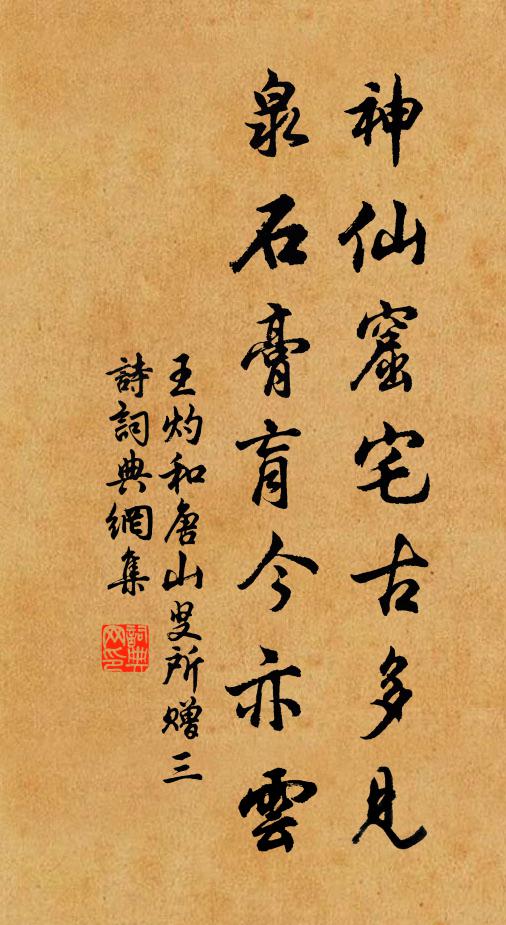 神仙窟宅古多見
泉石膏肓今亦雲
王灼和唐山叟所贈三
詩詞典網集
詞典
网印